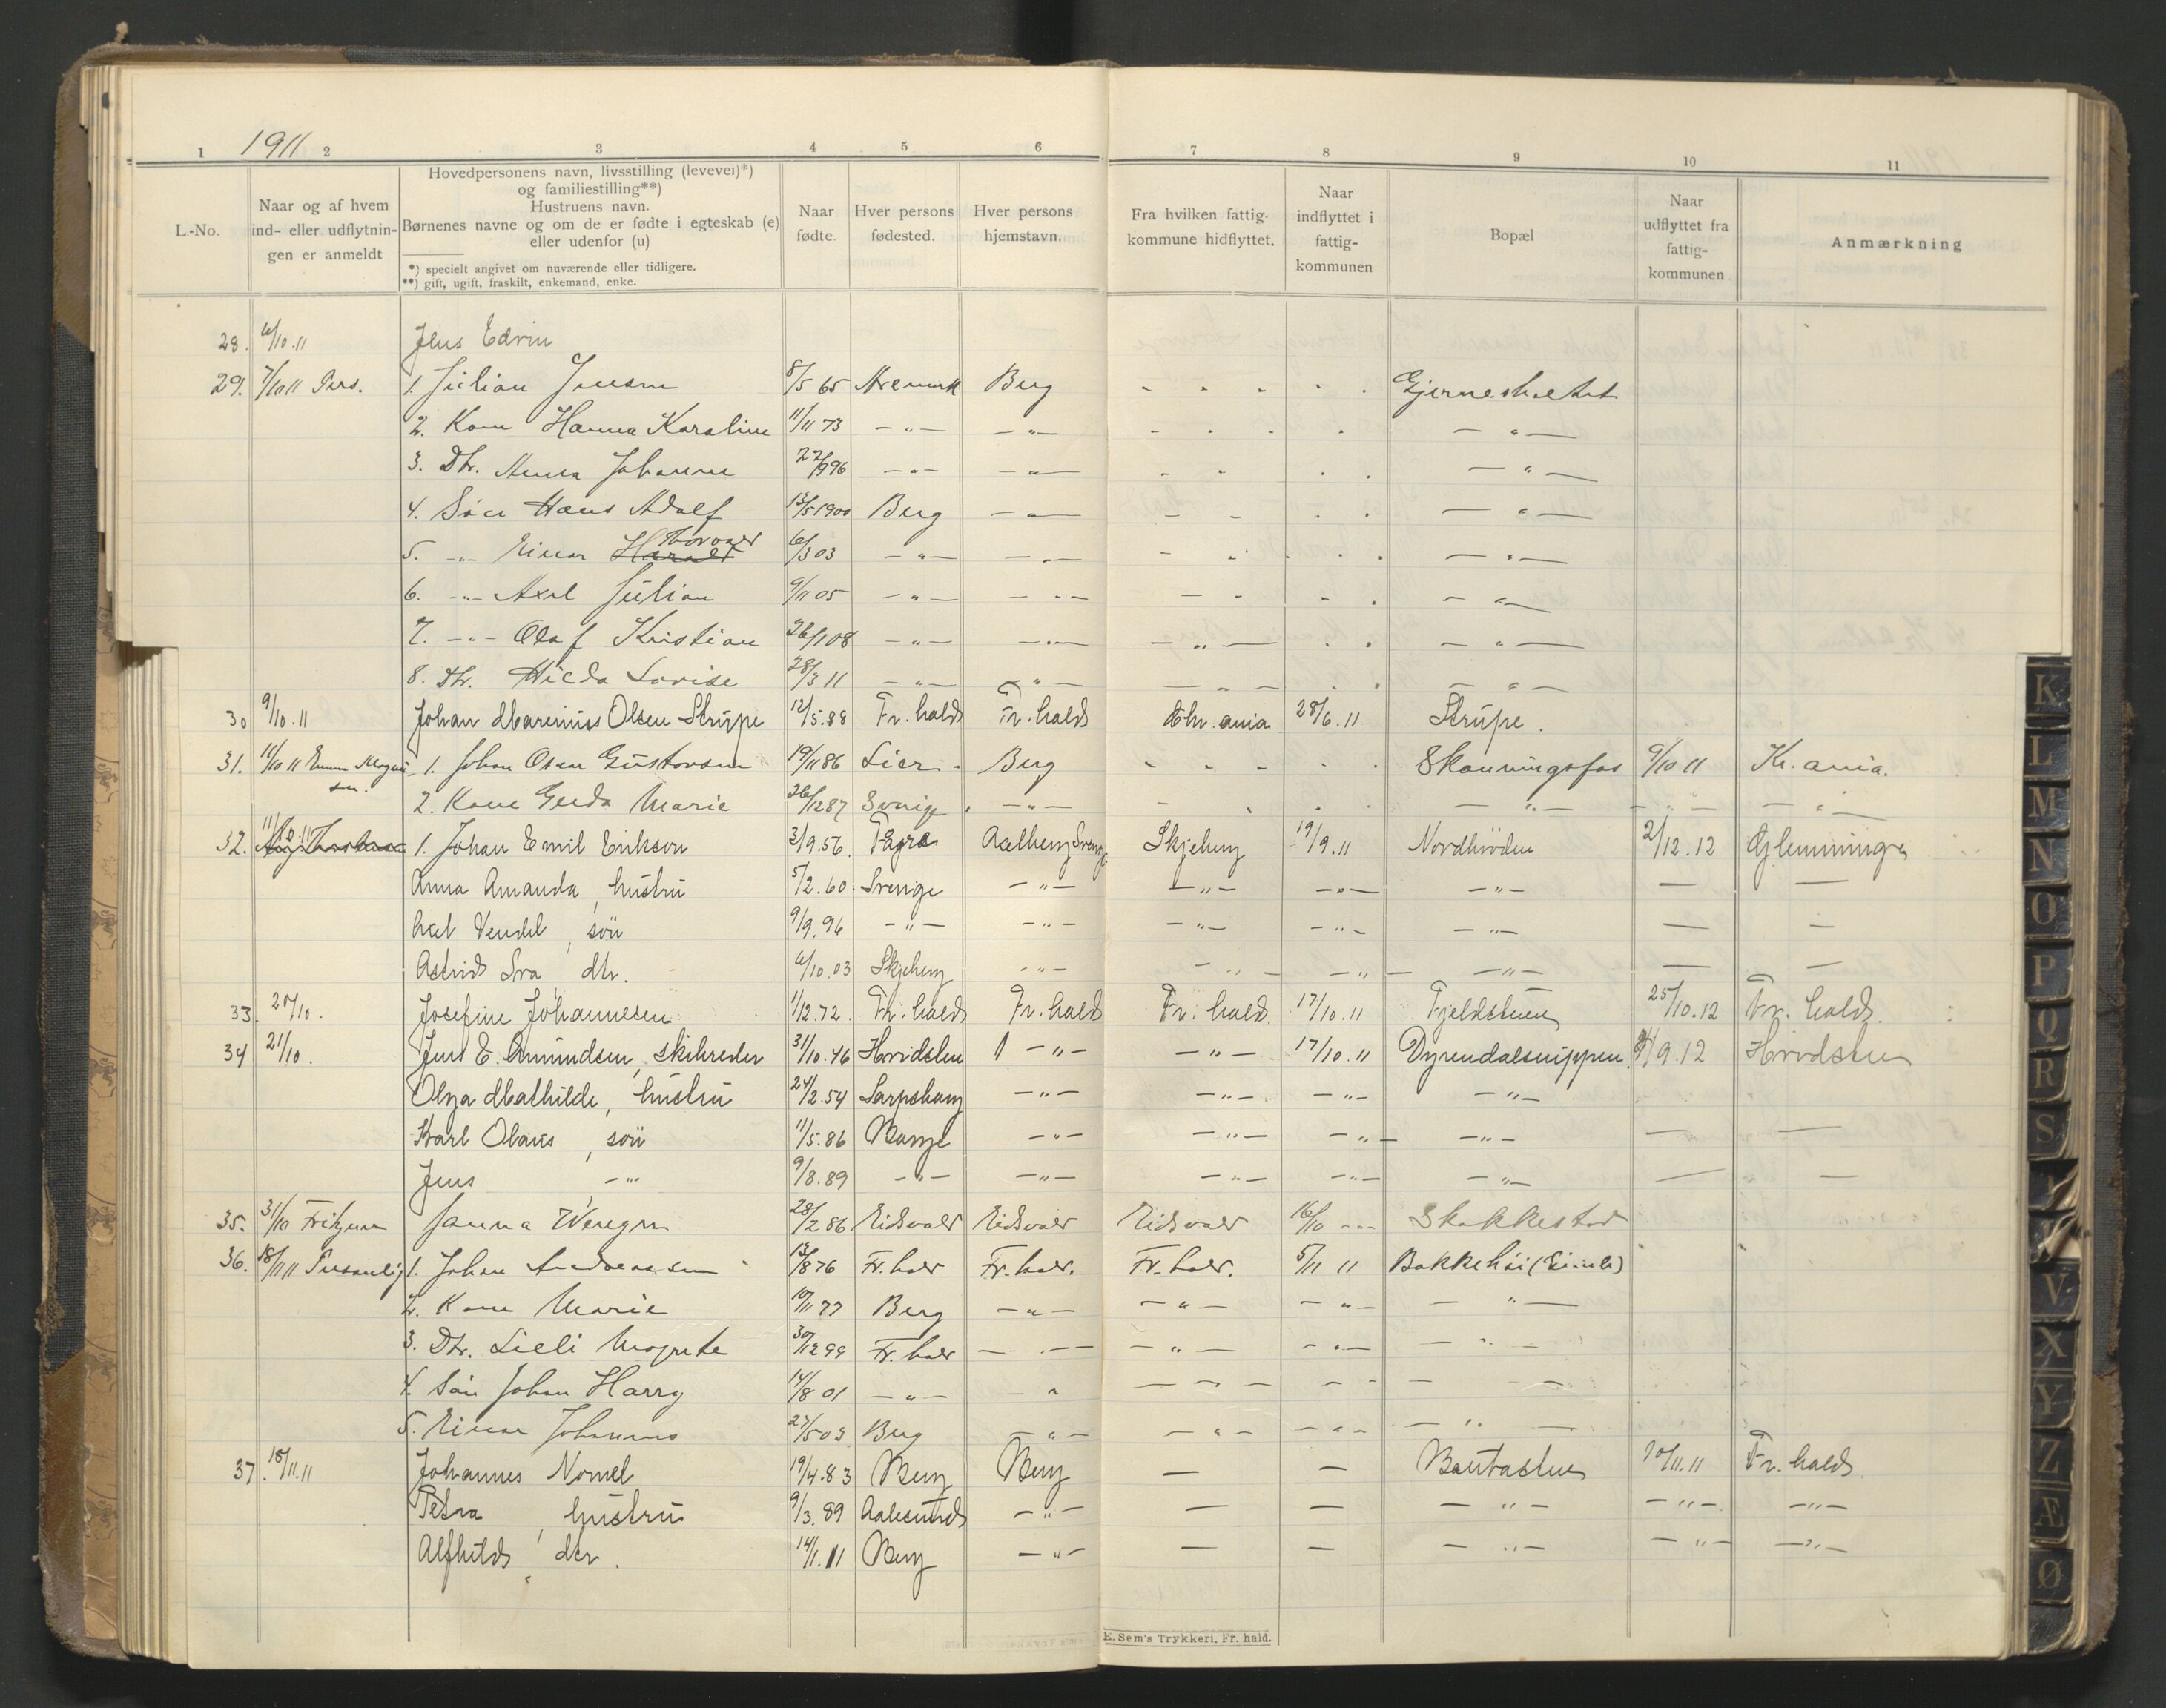 1911
1 2 3 4 5 6 7 8 9 10 11
L.-No.
Naar og af hvem
ind- eller udflytnin-
gen er anmeldt
Hovedpersonens navn, livsstilling (levevei)*)
og familiestilling**)
Hustruens navn.
Børnenes navne og om de er fødte i egteskab (e)
eller udenfor (u)
*) specielt angivet om nuværende eller tidligere.
**) gift, ugift, fraskilt, enkemand, enke.
Naar
fødte.
Hver persons
fødested.
Hver persons
hjemstavn.
Fra hvilken fattig-
kommune hidflyttet.
Naar
indflyttet i
fattig-
kommunen
Bopæl
Naar
udflyttet fra
fattig-
kommunen
Anmærkning
28. 6/10.11 Jens Edvin
29. 7/10 11 Pers. 1. Julian Jensen 8/5 65 Aremark Berg
2. Kone Hanna Karoline 11/11 73 -"- -"- -"-
3. Dtr. Anna Johanne 22/9 96 -"- -"- -"-
4. Søn Hans Adolf 13/5 1900 Berg -"- -"-
5. -"- Einar Harald Thorvald 6/3 03 -"- -"- -"-
6. -"- Axel Julian 9/11 05 -"- -"- -"-
7. -"- Olaf Kristian 26/1 08 -"- -"- -"- -"-
8. Dtr. Hilda Lovise 28/3 11 -"- -"- -"- -"-
30 9/10.11 Johan Marenius Olsen Strupe 12/5.88 Fr.hald Fr.hald Chr.ania 28/6.11 Strupe.
31. 11/10 11 1. Johan Oskar Gustavsen 19/11 86 Lier Berg Skonningsfos 9/10 11 Kr.ania.
2. Kone Gerda Marie 26/12 87 Sverige -"- -"- -"- -"-
32. 11/10.11 1. Johan Emil Erikson 3/9.56. Skjeberg 19/9.11 2/12.12 Glemminge
Anna Amanda, hustru 5/2.60 Sverige -"- -"- -"- -"- — —
Axel Vendel, søn 9/9.96 -"- -"- -"- -"- -"- — —
Astrid Sva, dtr. 6/10.03 Skjeberg -"- -"- -"- -"- — —
33. 20/10. Josefine Johannesen 1/12.72. Fr.hald Fr.hald Fr.hald. 17/10.11 Fjeldstuen 25/10.12 Fr.hald.
34 21/10. Jens E. Amundsen, skibsreder 31/10.46 Hvidsten -"- -"- 17/10.11 Dyrendalsnippen 9.12 Hvidsten
Olga Mathilde, hustru 24/2.54 Sarpsborg -"- -"- -"- -"-
Karl Olaus, søn 11/5.86 -"- -"- -"- -"- — —
Jens -"- 9/8.89 -"- -"- -"- -"- -"- — —
35. 31/10 Janna 28/2 86 Eidsvold Eidsvold Eidsvold 16/10 -"- Skakkestad
36. 18/11 11 Personlig 1. Johan Andreassen 13/8 76 Fr.hald Fr.hald. Fr.hald. 5/11 11 Bakkehøi
2. Kone Marie 10/11 77 Berg -"- -"- -"- -"-
3. Dtr. 30/12 99 Fr.hald -"- -"- -"- -"-
4. Søn Johan Harry 14/8 01 -"- -"- -"- -"- -"-
5. Einar Johannes 27/5 03 Berg -"- -"- -"- -"-
37. 18/11.11 Johannes Nomel 19/4.83 Berg Berg — — Bautastuen 10/11.11 Fr.hald.
Petra, hustru 9/3.89 Aalesund -"- — — -"- -"- -"-
Alfhild, dtr. 14/1.11 Berg -"- — — -"- -"- -"-
E. Sem's Trykkeri, Fr. hald.
K
L
M
N
O
P
Q
R
S
V
X
Y
Z
Æ
Ø